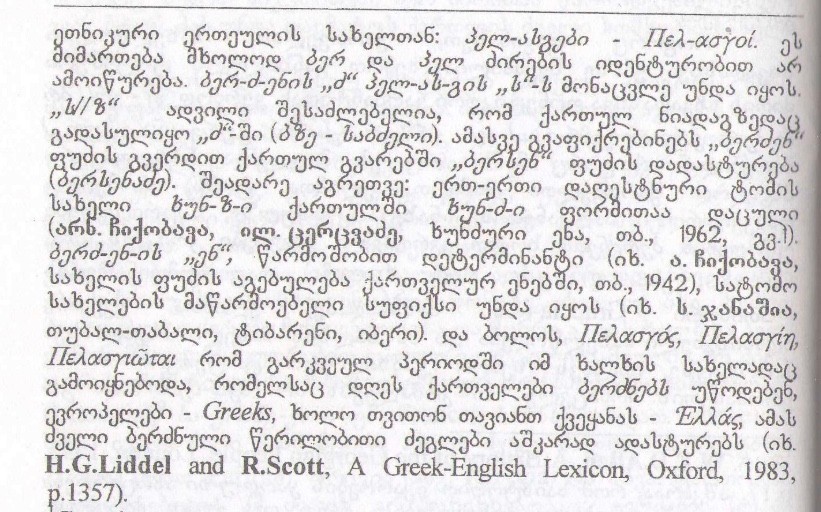 ეთნიკური ერთეულის სახელთან: პელ-ასგები - Πελ-ασγοί. ეს
მიმართება მხოლოდ ბერ და პელ ძირების იდენტურობით არ
ამოიწურება. ბერ-ძ-ენის „ძ“ პელ-ას-გის „ს“-ს მონაცვლე უნდა იყოს.
„ს//ზ“ ადვილი შესაძლებელია, რომ ქართულ ნიადაგზედაც
გადასულიყო „ძ“-ში (ბზე - საბძელი). ამასვე გვაფიქრებინებს „ბერძენ“
ფუძის გვერდით ქართულ გვარებში „ბერსენ“ ფუძის დადასტურება
(ბერსენაძე). შეადარე აგრეთვე: ერთ-ერთი დაღესტნური ტომის
სახელი ხუნ-ზ-ი ქართულში ხუნ-ძ-ი ფორმითაა დაცული
(არნ. ჩიქობავა, ილ. ცერცვაძე, ხუნძური ენა, თბ., 1962, გვ.1).
ბერძ-ენ-ის „ენ“, წარმოშობით დეტერმინანტი (იხ. ა. ჩიქობავა,
სახელის ფუძის აგებულება ქართველურ ენებში, თბ., 1942), სატომო
სახელების მაწარმოებელი სუფიქსი უნდა იყოს (იხ. ს. ჯანაშია,
თუბალ-თაბალი, ტიბარენი, იბერი). და ბოლოს, Πελασγός, Πελασγίη,
Πελασγιῶται რომ გარკვეულ პერიოდში იმ ხალხის სახელადაც
გამოიყნებოდა, რომელსაც დღეს ქართველები ბერძნებს უწოდებენ,
ევროპელები - Greeks, ხოლო თვითონ თავიანთ ქვეყანას - Ἑλλάς, ამას
ძველი ბერძნული წერილობითი ძეგლები აშკარად ადასტურებს (იხ.
H.G.Liddel and R.Scott, A Greek-English Lexicon, Oxford, 1983,
p.1357).